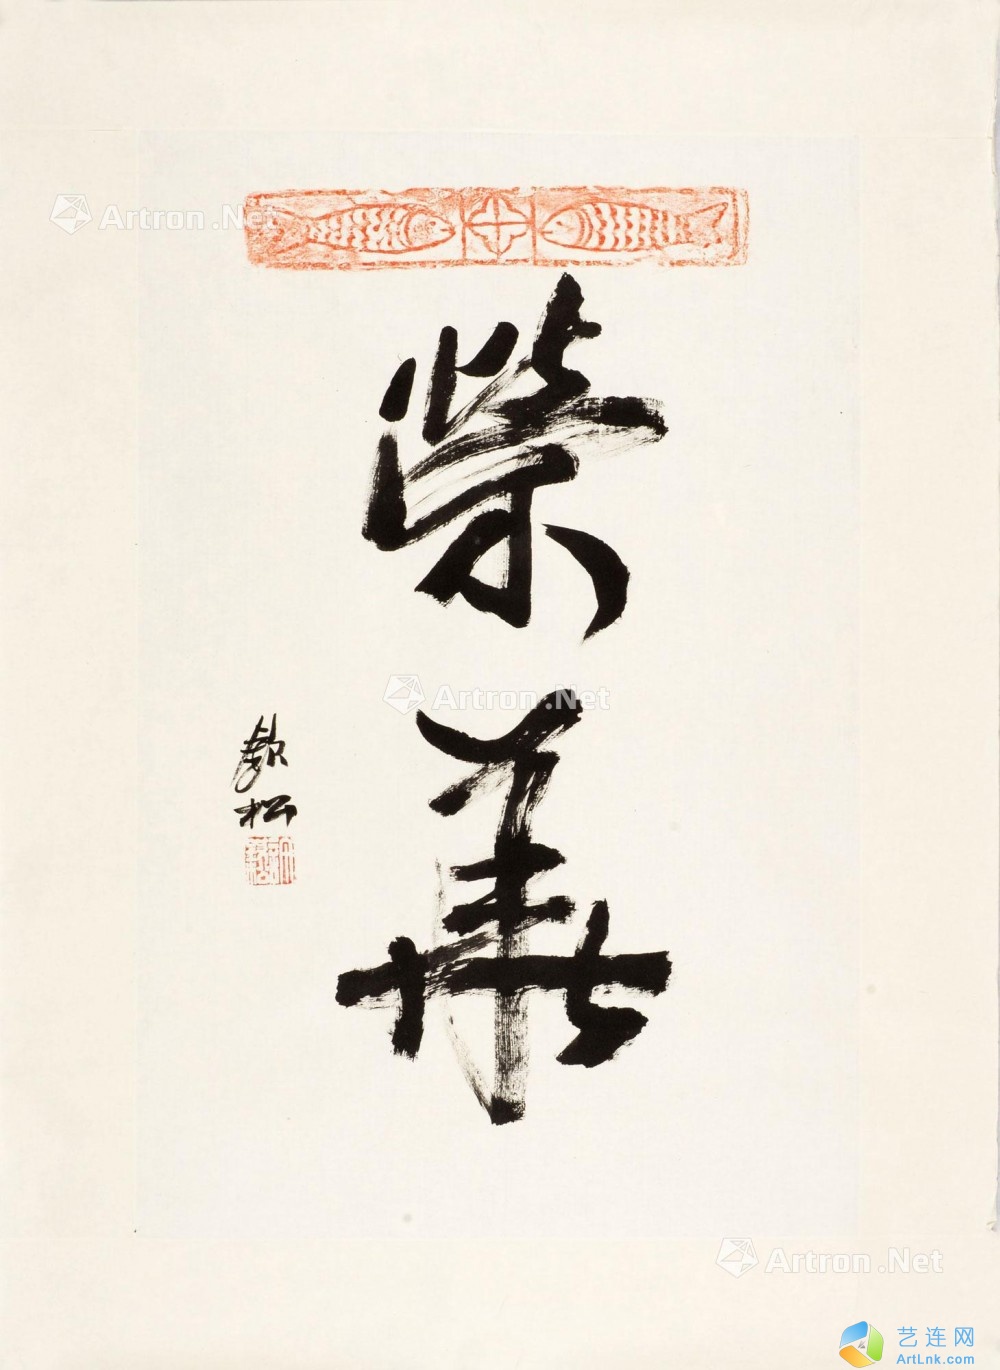 榮華
欽松
Artron.Net
Artron.Net
Artron.Net
艺连网
ArtLnk.com